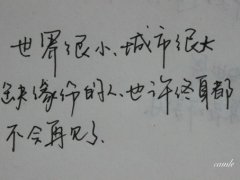 世界很小、城市很大
缺缘份的人、也许终身都
不会再见了.
camle